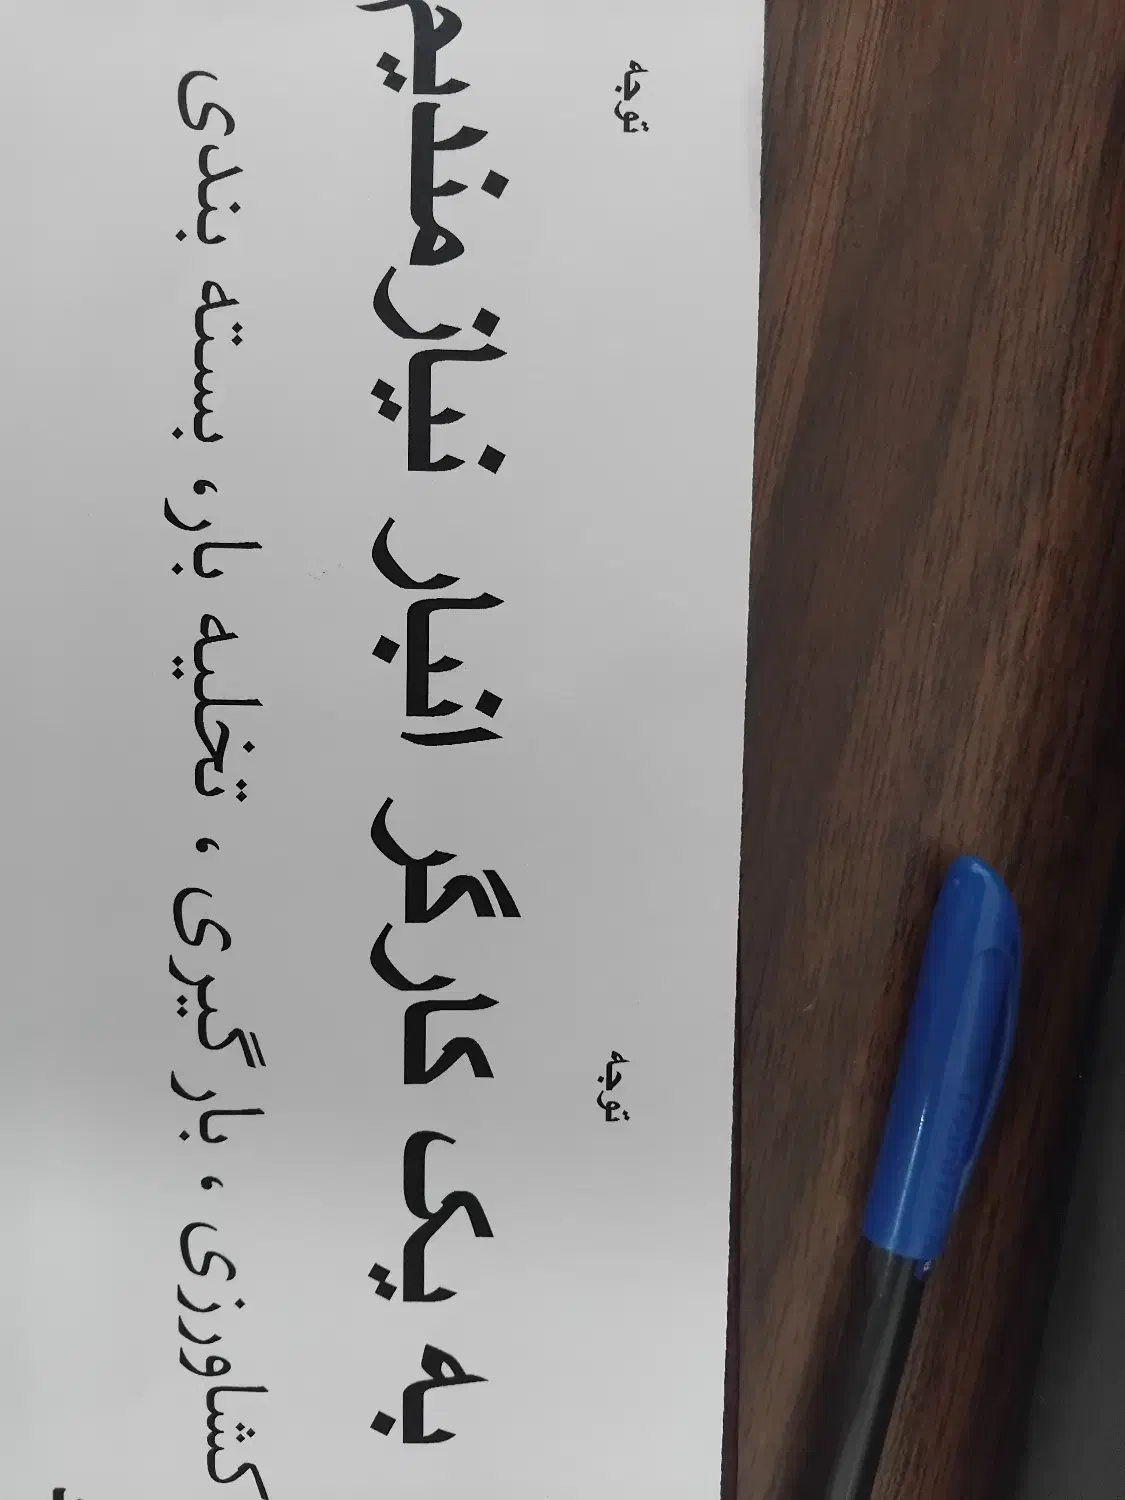 توجه توجه
به یک کارگر انبار نیازمندیم
کشاورزی ، بار گیری ، تخلیه بار، بسته بندی